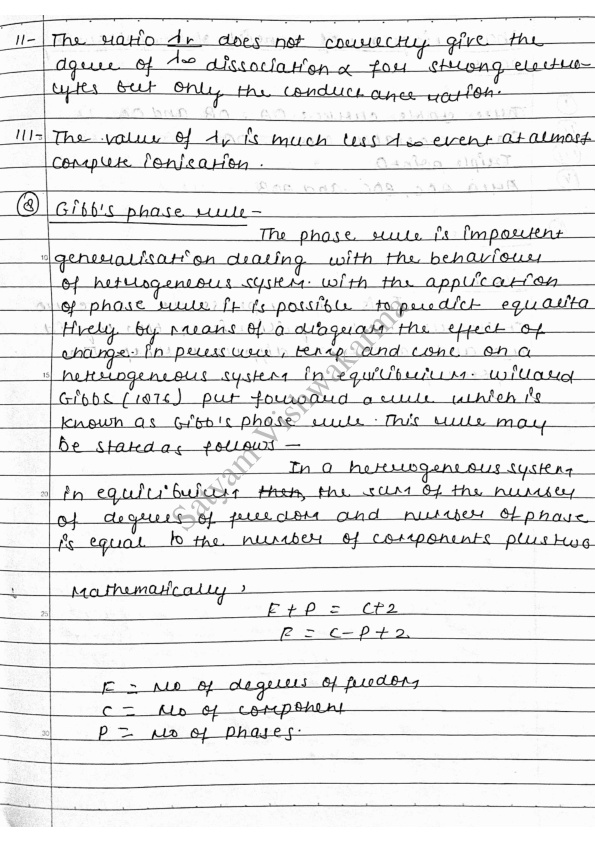 11- The ratio λv does not correctly give the
λ∞
dgree of dissociation α for strong electro-
lytes but only the conductance ration.
111- The value of λv is much less λ∞ event at almost
complete ionisation.
⑧ Gibb's phase rule -
The phase rule is important
10 generalisation dealing with the behaviour
of hetrogeneous system. with the application
of phase rule it is possible to predict equalita
tively by means of a disgram the effect of
change in pressure, temp and conc on a
15 heterogeneous system in equilibrium. willard
Gibbs (1876) put forward a rule which is
known as Gibb's phase rule. This rule may
be stated as follows -
In a heterogeneous system
20 in equilibrium then, the sum of the number
of degrees of freedom and number of phase
is equal to the number of components plus two
Mathematically,
25 F + P = C+2
F = C-P+2
F = No of degrees of freedom
C = No of component
30 P = No of Phases.
Satyam Vishwakarma